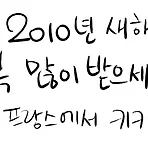 2010년 새해
복 많이 받으세
프랑스에서 키키